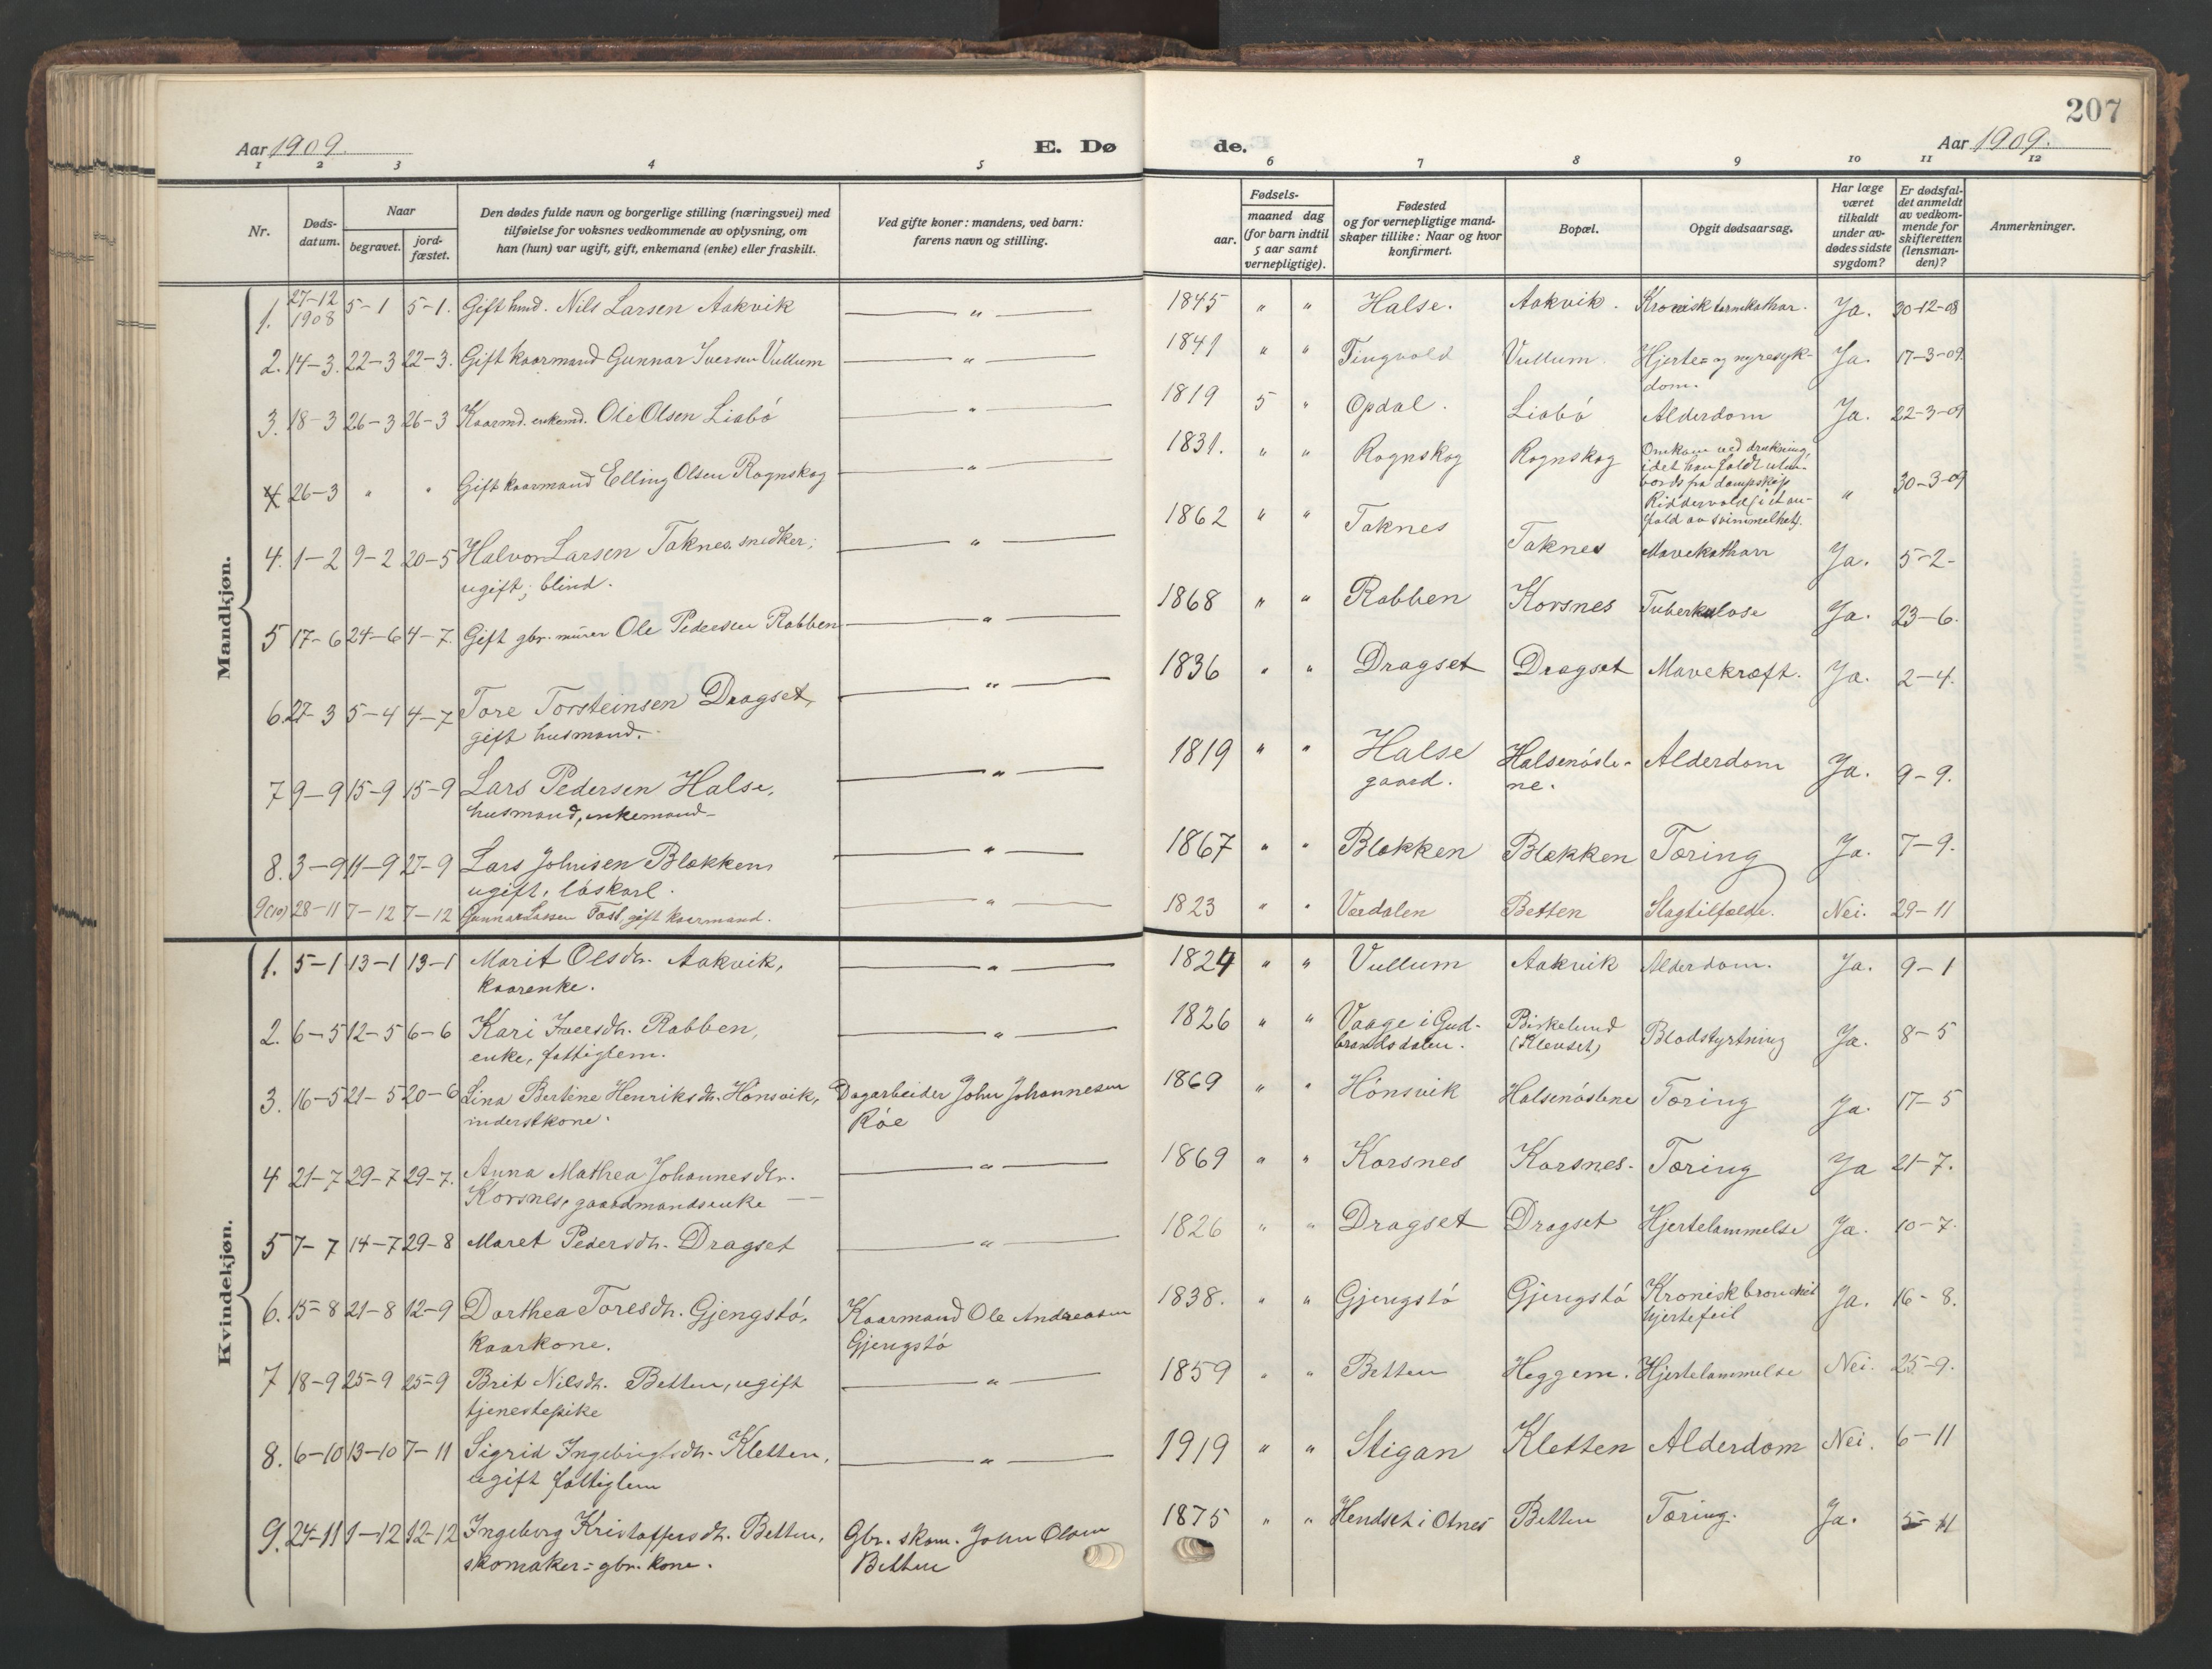 207
Aar 1909. E. Dø de. Aar 1909.
1 2 3 4 5 6 7 8 9 10 11 12
Nr.
Døds-
datum.
Naar
begravet.
jord-
fæstet.
Den dødes fulde navn og borgerlige stilling (næringsvei) med
tilføielse for voksnes vedkommende av oplysning, om
han (hun) var ugift, gift, enkemand (enke) eller fraskilt.
Ved gifte koner: mandens, ved barn:
farens navn og stilling.
Fødsels-
aar.
maaned dag
(for barn indtil
5 aar samt
vernepligtige).
Fødested
og for vernepligtige mand-
skaper tillike: Naar og hvor
konfirmert.
Bopæl.
Opgit dødsaarsag.
Har læge
været
tilkaldt
under av-
dødes sidste
sygdom?
Er dødsfal-
det anmeldt
av vedkom-
mende for
skifteretten
(lensman-
den)?
Anmerkninger.
Mandkjøn.
1. 27-12 1908 5-1 5-1. Gift husd. Nils Larsen Aakvik — " — 1845 " " Halse. Aakvik. Kronisk tarmkathar. Ja. 30-12-08
2. 14-3. 22-3 22-3. Gift kaarmand Gunnar Iversen Vullum — " — 1841 " " Tingvold Vullum. Hjerte= og nyresyk-
dom. Ja. 17-3-09.
3. 18-3 26-3 26-3 Kaarmd. enkemd. Ole Olsen Liabö — " — 1819 5 " Opdal. Liabö Alderdom Ja. 22-3-09
4 26-3 " " Gift kaarmand Elling Olsen Rognskog — " — 1831. " " Rognskog Rognskog Omkom ved drukning,
idet han faldt uten-
bords fra dampskip
Riddervold (i et an-
fald av svimmelhet). " 30-3-09
4. 1-2 9-2 20-5 Halvor Larsen Taknes, snedker; — " — 1862 " " Taknes Taknes Mavekatharr Ja. 5-2-
ugift; blind.
5 17-6 24-6 4-7. Gift gbr. murer Ole Pedersen Rabben — " — 1868 " " Rabben Korsnes Tuberkulose Ja. 23-6.
6. 27-3 5-4 4-7 Tore Torsteinsen Dragset, — " — 1836 " " Dragset Dragset Mavekræft. Ja. 2-4.
gift husmand.
7 9-9 15-9 15-9 Lars Pedersen Halse, — " — 1819 " " Halse
gaard. Halsenöste-
ne. Alderdom Ja. 9-9.
husmand, enkemand-
8. 3-9 11-9 27-9 Lars Johnsen Blekken, — " — 1867 " " Blekken Blekken Tæring Ja. 7-9.
ugift, löskarl.
9(10) 28-11 7-12 7-12 Gunnar Lassen Tast, gift kaarmand. — " — 1823 " " Værdalen Betten Slagtilfælde. Nei. 29-11
Kvindekjøn.
1. 5-1 13-1 13-1 Marit Olsdtr. Aakvik, — " — 1824 " " Vullum Aakvik Alderdom. Ja. 9-1
kaarenke.
2. 6-5 12-5 6-6 Kari Iversdtr. Rabben, — " — 1826 " " Vaage i Gud-
brandsdalen. Birkelund
(Klevset) Blodstyrtning Ja. 8-5
enke, fattiglem.
3. 16-5 21-5 20-6 Lina Bertine Henriksdtr. Hönsvik, Dagarbeider John Johannesen
Röe 1869 " " Hönsvik Halsenöstene Tæring Ja. 17-5
inderstkone.
4 21-7 29-7 29-7. Anna Mathea Johannesdtr. — " — 1869 " " Korsnes Korsnes. Tæring Ja 21-7.
Korsnes, gaardmandsenke
5 7-7 14-7 29-8 Maret Pedersdtr. Dragset — " — 1826 " " Dragset Dragset Hjertelammelse Ja. 10-7.
6. 15-8 21-8 12-9 Dorthea Toresdtr. Gjengstö, Kaarmand Ole Andreasen
Gjengstö 1838. " " Gjengstö Gjengstö Kronisk bronchit
hjertefeil Ja. 16-8.
kaarkone.
7 18-9 25-9 25-9 Brit Nilsdtr. Betten, ugift — " — 1859 " " Betten Heggem. Hjertelammelse Nei. 25-9.
tjenestepike
8. 6-10 13-10 7-11 Sigrid Ingebrigtsdtr. Kletten, — " — 1919 " " Stigan Kletten Alderdom Nei. 6-11
ugift fattiglem
9. 24-11 1-12 12-12 Ingeborg Kristoffersdtr. Betten, Gbr. skom. John Olsen
Betten 1875 " " Hendset i Otnes Betten Tæring. Ja. 5-11
skomaker= gbr. kone.